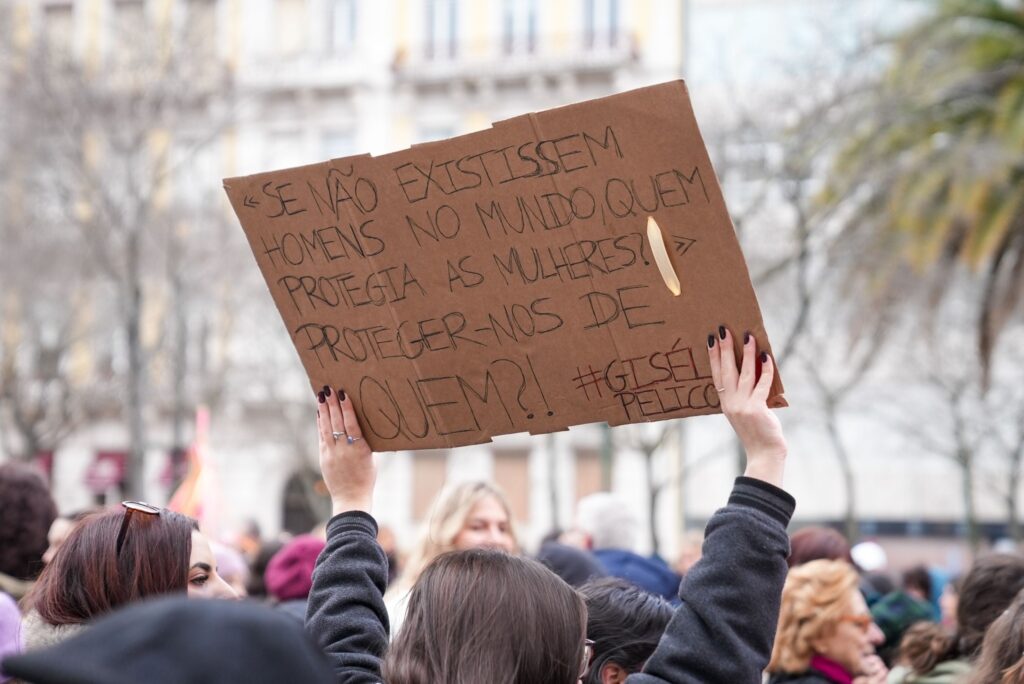 «SE NÃO EXISTISSEM
HOMENS NO MUNDO, QUEM
PROTEGIA AS MULHERES? »
PROTEGER-NOS DE
QUEM?!
#GISÉL
PELICO